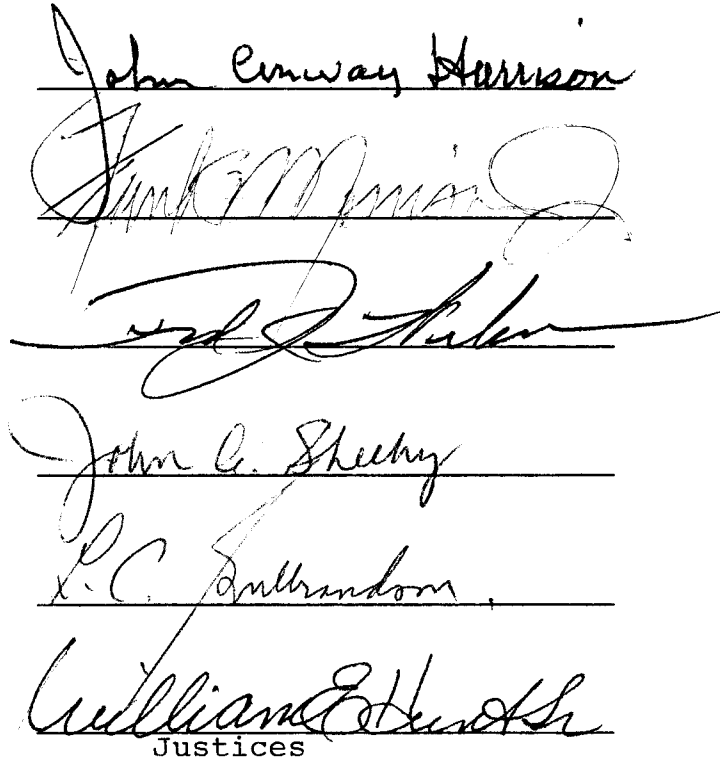 John Conway Harrison
Frank B. Morrison Jr.
Fred J. Weber
John C. Sheehy
L. C. Gulbrandson
William E. Hunt Sr
Justices